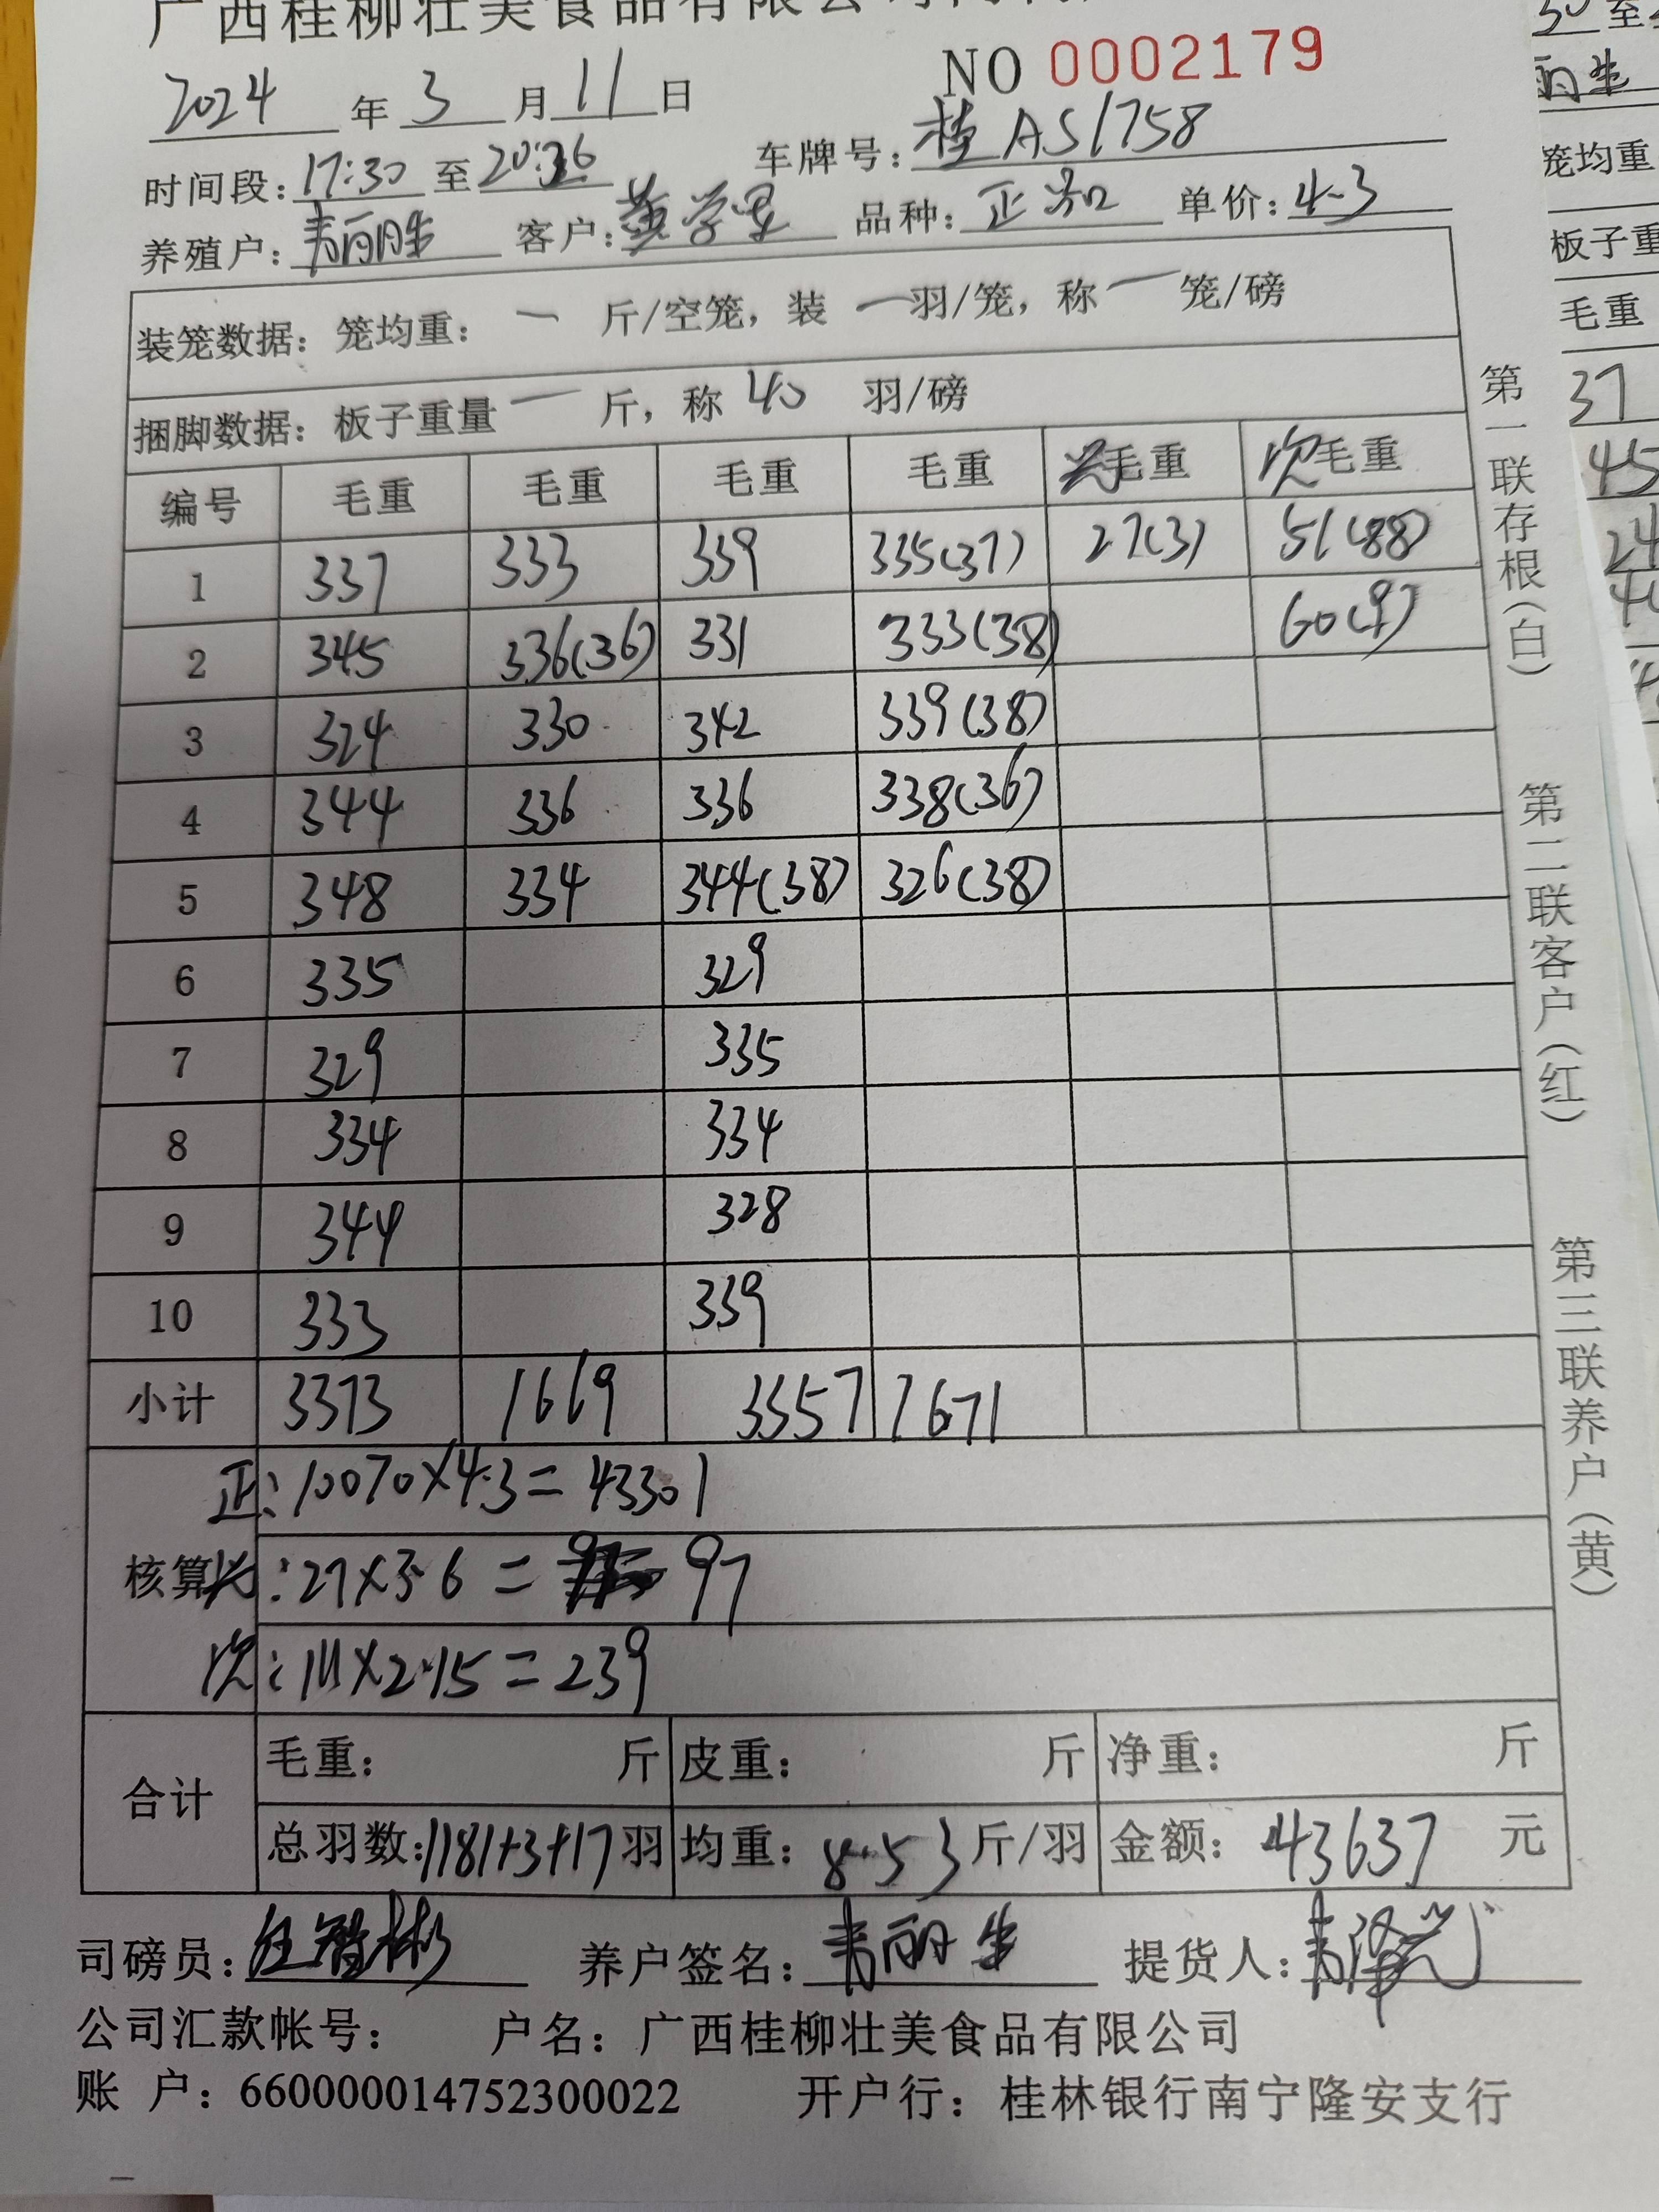 广西桂柳壮美食品有限公司
NO 0002179
2024 年 3 月 11 日
时间段: 17:30 至 20:36 车牌号: 桂AS1758
养殖户: 韦丽胜 客户: 黄学里 品种: 正 单价: 4.3
装笼数据: 笼均重: 一 斤/空笼, 装 一 羽/笼, 称 一 笼/磅
捆脚数据: 板子重量 一 斤, 称 40 羽/磅
编号 毛重 毛重 毛重 毛重 毛重 次毛重
1 337 333 339 335(37) 27(3) 51(8)
2 345 336(36) 331 333(38) 60(9)
3 324 330 342 339(38)
4 344 336 336 338(36)
5 348 334 344(38) 326(38)
6 335 329
7 329 335
8 334 334
9 344 328
10 333 339
小计 3373 1669 3357 1671
正: 10070×4.3=43301
核算 : 27×3.6= 97
次: 111×2.15=239
合计 毛重: 斤 皮重: 斤 净重: 斤
总羽数: 1181+3+17 羽 均重: 8.53 斤/羽 金额: 43637 元
司磅员: 养户签名: 韦丽生 提货人: 韦泽
公司汇款帐号: 户名: 广西桂柳壮美食品有限公司
账 户: 660000014752300022 开户行: 桂林银行南宁隆安支行
第一联存根(白) 第二联客户(红) 第三联养户(黄)
至
笼均重
板子重
毛重
37
45
24